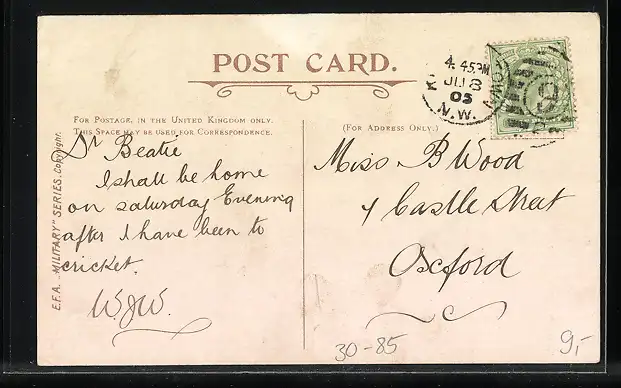 POST CARD.
FOR POSTAGE, IN THE UNITED KINGDOM ONLY.
THIS SPACE MAY BE USED FOR CORRESPONDENCE.
(FOR ADDRESS ONLY.)
E.F.A. „MILITARY" SERIES. Copyright.
Dr Beatie
I shall be home
on saturday Evening
after I have been to
cricket.
W.J.W.
4. 45.PM
JU 8
05
N.W.
Miss B Wood
4 Castle Street
Oxford
30-85
9,-